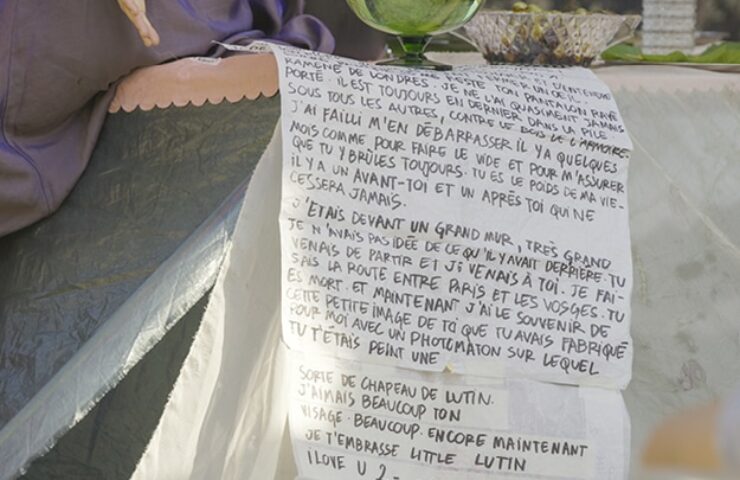 FERMER UN OEIL. ET D'ENTENDRE
RAMENÉ DE LONDRES. JE NE L'AI QUASIMENT JAMAIS
PORTÉ. IL EST TOUJOURS EN DERNIER DANS LA PILE
SOUS TOUS LES AUTRES, CONTRE LE BOIS DE L'ARMOIRE.
J'AI FAILLI M'EN DÉBARRASSER IL Y A QUELQUES
MOIS COMME POUR FAIRE LE VIDE ET POUR M'ASSURER
QUE TU Y BRÛLES TOUJOURS. TU ES LE POIDS DE MA VIE-
IL Y A UN AVANT-TOI ET UN APRÈS TOI QUI NE
CESSERA JAMAIS.
J'ÉTAIS DEVANT UN GRAND MUR, TRÈS GRAND
JE N'AVAIS PAS IDÉE DE CE QU'IL Y AVAIT DERRIÈRE. TU
VENAIS DE PARTIR ET JE VENAIS À TOI. JE FAI-
SAIS LA ROUTE ENTRE PARIS ET LES VOSGES. TU
ES MORT. ET MAINTENANT J'AI LE SOUVENIR DE
CETTE PETITE IMAGE DE TOI QUE TU AVAIS FABRIQUÉ
POUR MOI AVEC UN PHOTOMATON SUR LEQUEL
TU T'ÉTAIS PEINT UNE
SORTE DE CHAPEAU DE LUTIN.
J'AIMAIS BEAUCOUP TON
VISAGE. BEAUCOUP. ENCORE MAINTENANT
JE T'EMBRASSE LITTLE LUTIN
I LOVE U 2-